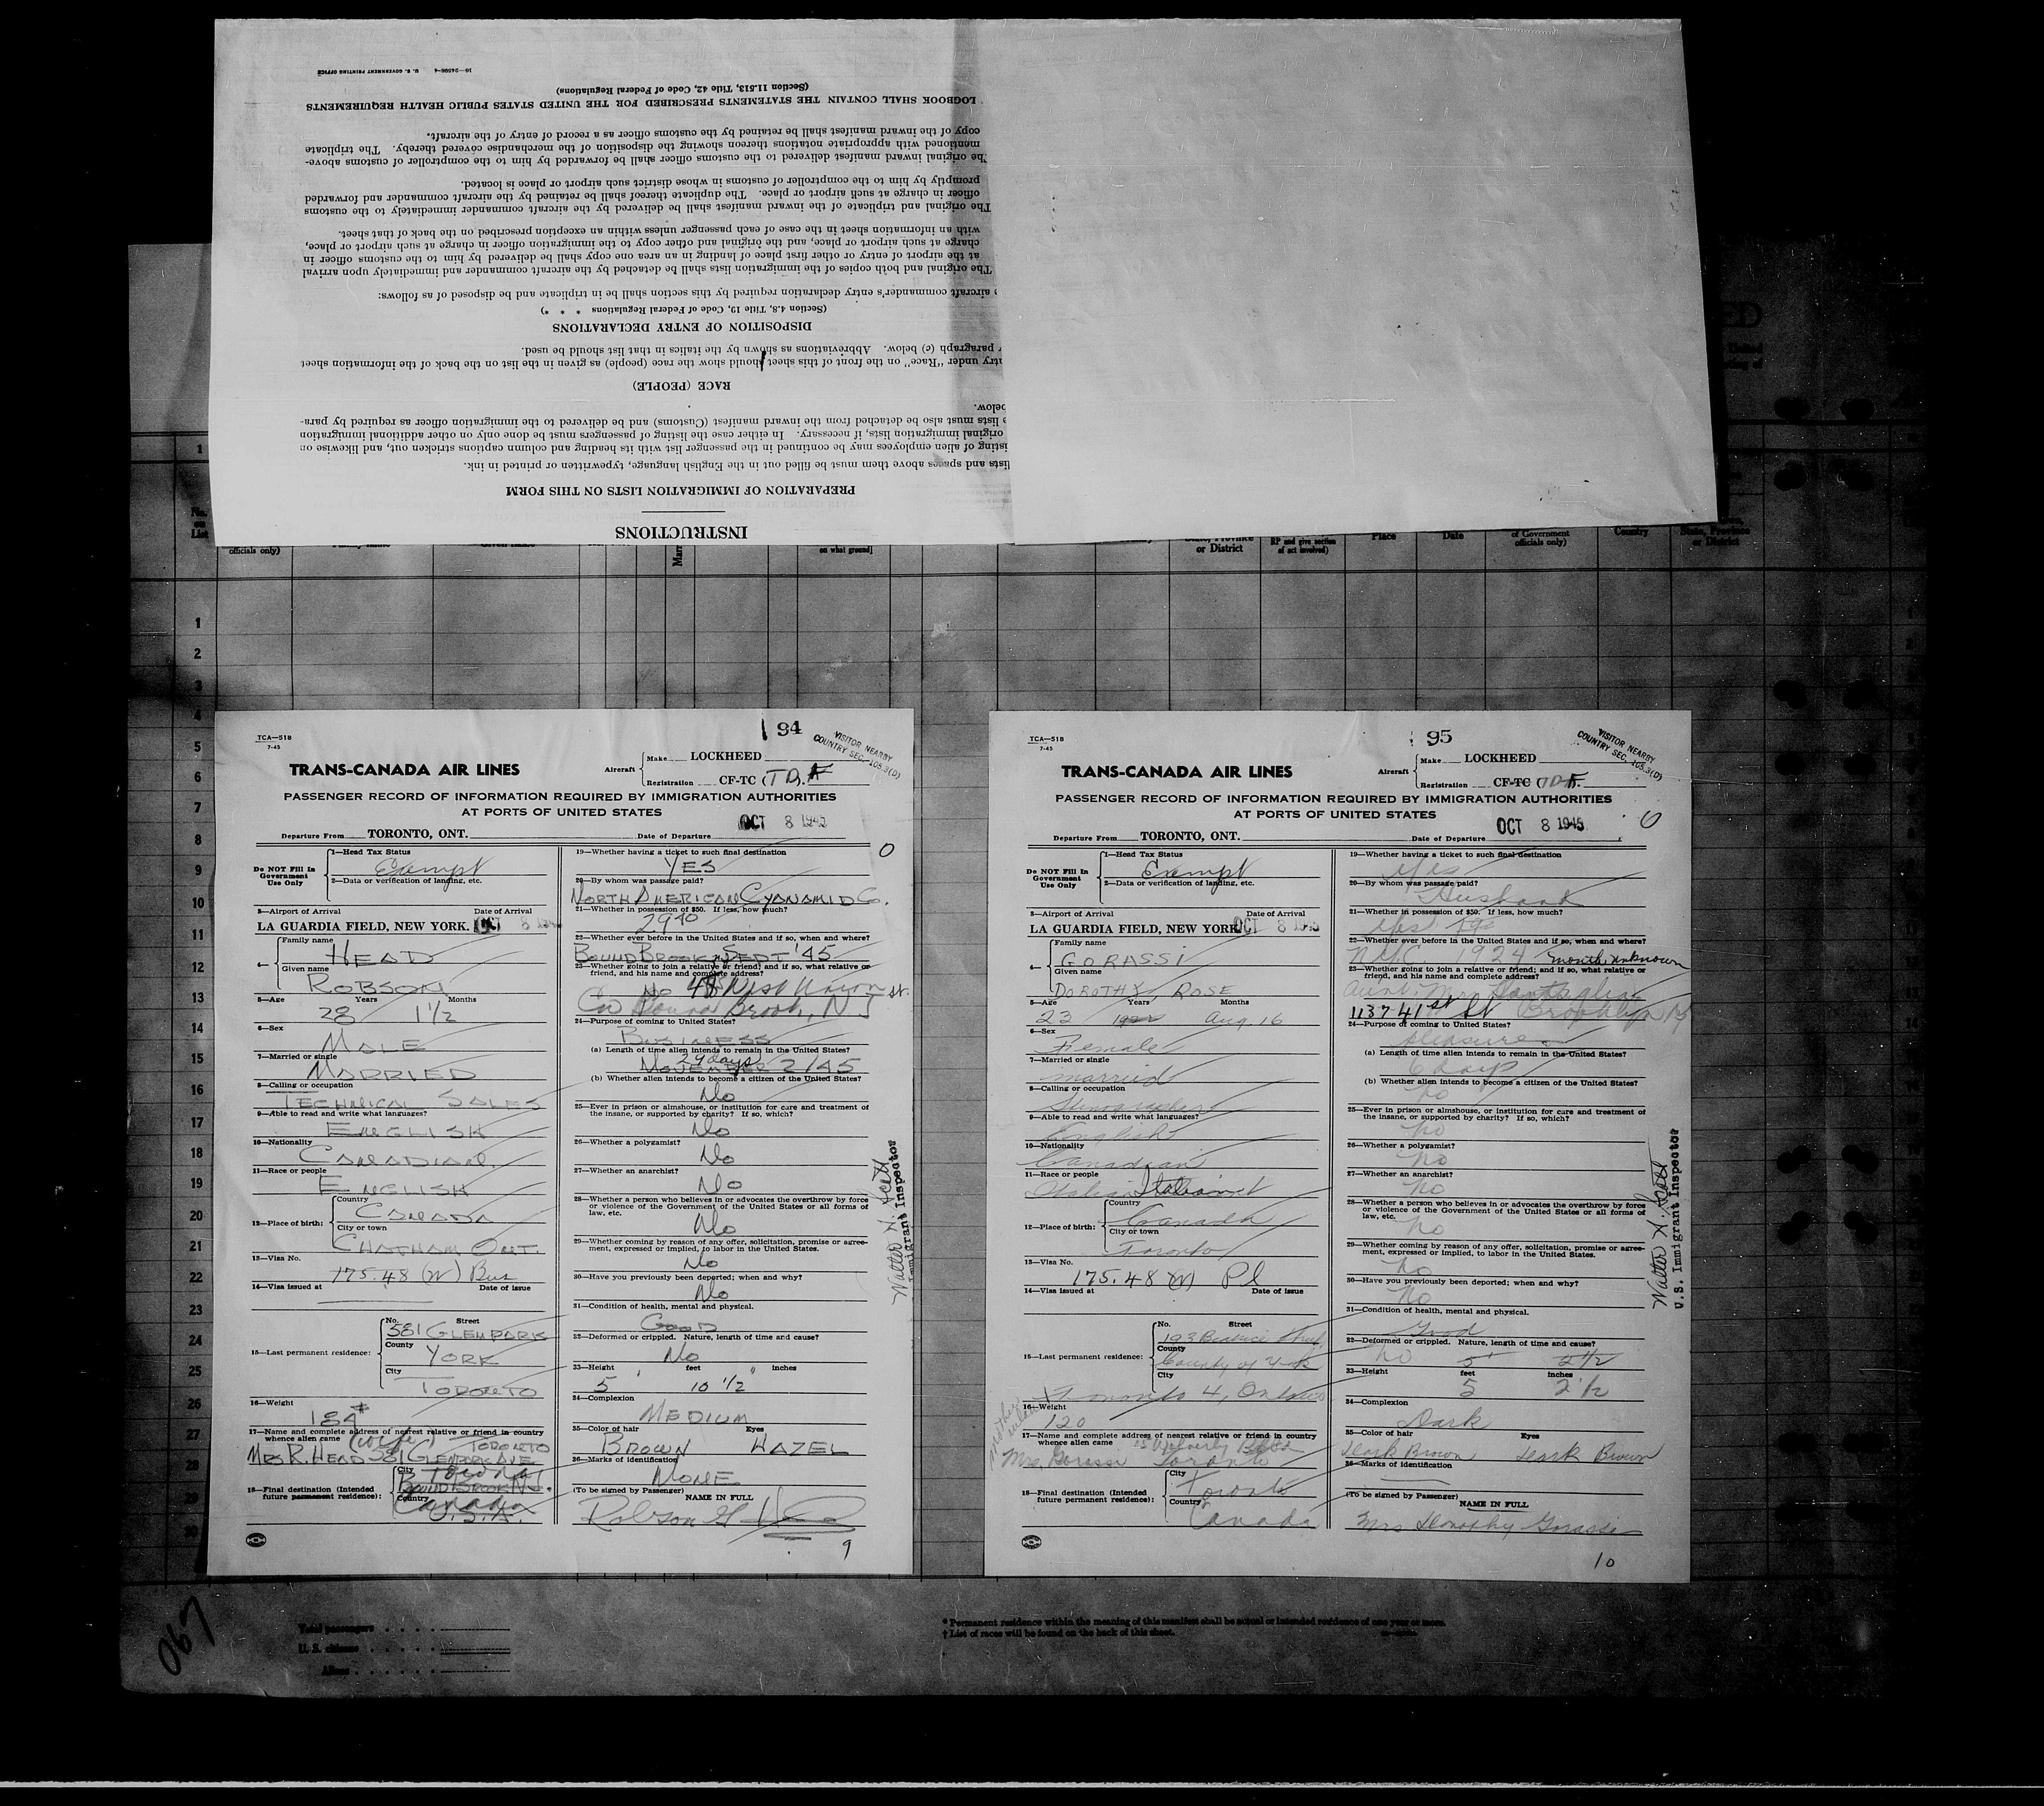 INSTRUCTIONS
PREPARATION OF IMMIGRATION LISTS ON THIS FORM
lists and spaces above them must be filled out in the English language, typewritten or printed in ink.
isting of alien employees may be continued in the passenger list with its heading and column captions stricken out, and likewise on
original immigration lists, if necessary. In either case the listing of passengers must be done only on other additional immigration
e lists must also be detached from the inward manifest (Customs) and be delivered to the immigration officer as required by para-
below.
RACE (PEOPLE)
ntry under "Race" on the front of this sheet should show the race (people) as given in the list on the back of the information sheet
r paragraph (c) below. Abbreviations as shown by the italics in that list should be used.
DISPOSITION OF ENTRY DECLARATIONS
(Section 4.8, Title 19, Code of Federal Regulations * * *)
e aircraft commander's entry declaration required by this section shall be in triplicate and be disposed of as follows:
The original and both copies of the immigration lists shall be detached by the aircraft commander and immediately upon arrival
at the airport of entry or other first place of landing in an area one copy shall be delivered by him to the customs officer in
charge at such airport or place, and the original and other copy to the immigration officer in charge at such airport or place,
with an information sheet in the case of each passenger unless within an exception prescribed on the back of that sheet.
The original and triplicate of the inward manifest shall be delivered by the aircraft commander immediately to the customs
officer in charge at such airport or place. The duplicate thereof shall be retained by the aircraft commander and forwarded
promptly by him to the comptroller of customs in whose district such airport or place is located.
The original inward manifest delivered to the customs officer shall be forwarded by him to the comptroller of customs above-
mentioned with appropriate notations thereon showing the disposition of the merchandise covered thereby. The triplicate
copy of the inward manifest shall be retained by the customs officer as a record of entry of the aircraft.
LOGBOOK SHALL CONTAIN THE STATEMENTS PRESCRIBED FOR THE UNITED STATES PUBLIC HEALTH REQUIREMENTS
(Section 11.513, Title 42, Code of Federal Regulations)
16—24598-4 U. S. GOVERNMENT PRINTING OFFICE
No. on List
officials only)
on what ground]
or District
RP and give section of act involved)
Place
Date
of Government officials only)
Country
State, Province or District
TCA—518
7-45
94
VISITOR NEARBY
COUNTRY SEC. 105.3(D)
TRANS-CANADA AIR LINES
Aircraft
Make LOCKHEED
Registration CF-TC (TD).F
PASSENGER RECORD OF INFORMATION REQUIRED BY IMMIGRATION AUTHORITIES
AT PORTS OF UNITED STATES
Departure From TORONTO, ONT. Date of Departure OCT 8 1945
0
Do NOT Fill In Government Use Only
1—Head Tax Status
Exempt
2—Data or verification of landing, etc.
3—Airport of Arrival Date of Arrival
LA GUARDIA FIELD, NEW YORK. OCT 8 194
4— Family name
HEAD
Given name
ROBSON
5—Age Years Months
28 1 1/2
6—Sex
MALE
7—Married or single
MARRIED
8—Calling or occupation
TECHNICAL SALES
9—Able to read and write what languages?
ENGLISH
10—Nationality
CANADIAN.
11—Race or people
ENGLISH
12—Place of birth: Country
CANADA
City or town
CHATHAM ONT.
13—Visa No.
175.48 (W) Bus
14—Visa issued at Date of issue
15—Last permanent residence:
No. Street
581 GLENPARK
County
YORK
City
TORONTO
16—Weight
184#
17—Name and complete address of nearest relative or friend in country whence alien came (wife) TORONTO
MRS R. HEAD 581 GLENPARK AVE
18—Final destination (Intended future permanent residence):
City Toronto
BOUND BROOK N.J.
Country Canada
U.S.A.
19—Whether having a ticket to such final destination
YES
20—By whom was passage paid?
NORTH AMERICAN CYANAMID CO.
21—Whether in possession of $50. If less, how much?
22—Whether ever before in the United States and if so, when and where?
BOUND BROOK SEPT '45
23—Whether going to join a relative or friend; and if so, what relative or friend, and his name and complete address?
No 48 West Union St.
Co Bound Brook, N J
24—Purpose of coming to United States?
BUSINESS
(a) Length of time alien intends to remain in the United States?
29 days
NOVEMBER 2/45
(b) Whether alien intends to become a citizen of the United States?
No
25—Ever in prison or almshouse, or institution for care and treatment of the insane, or supported by charity? If so, which?
No
26—Whether a polygamist?
No
27—Whether an anarchist?
No
28—Whether a person who believes in or advocates the overthrow by force or violence of the Government of the United States or all forms of law, etc.
No
29—Whether coming by reason of any offer, solicitation, promise or agreement, expressed or implied, to labor in the United States.
No
30—Have you previously been deported; when and why?
No
31—Condition of health, mental and physical.
GOOD
32—Deformed or crippled. Nature, length of time and cause?
No
33—Height feet inches
5' 10 1/2"
34—Complexion
MEDIUM
35—Color of hair Eyes
BROWN HAZEL
36—Marks of identification
NONE
(To be signed by Passenger)
NAME IN FULL
Robson G Head
9
Walter H. Scott
Immigrant Inspector
TCA—518
7-45
95
VISITOR NEARBY
COUNTRY SEC. 105.3(D)
TRANS-CANADA AIR LINES
Aircraft
Make LOCKHEED
Registration CF-TC (TDF.
PASSENGER RECORD OF INFORMATION REQUIRED BY IMMIGRATION AUTHORITIES
AT PORTS OF UNITED STATES
Departure From TORONTO, ONT. Date of Departure OCT 8 1945
0
Do NOT Fill In Government Use Only
1—Head Tax Status
Exempt
2—Data or verification of landing, etc.
3—Airport of Arrival Date of Arrival
LA GUARDIA FIELD, NEW YORK OCT 8 1945
4— Family name
GORASSI
Given name
DOROTHY ROSE
5—Age Years Months
23 1922 Aug. 16
6—Sex
Female
7—Married or single
married
8—Calling or occupation
9—Able to read and write what languages?
English
10—Nationality
Canadian
11—Race or people
Italian
12—Place of birth: Country
Canada
City or town
Toronto
13—Visa No.
175.48 (W) Pl
14—Visa issued at Date of issue
15—Last permanent residence:
No. Street
193 Beatrice Street
County
County of York
City
Toronto 4, Ontario
16—Weight
120
17—Name and complete address of nearest relative or friend in country whence alien came
Mrs. Gorassi Toronto
18—Final destination (Intended future permanent residence):
City Toronto
Country Canada
19—Whether having a ticket to such final destination
yes
20—By whom was passage paid?
Husband
21—Whether in possession of $50. If less, how much?
yes
22—Whether ever before in the United States and if so, when and where?
N.Y.C. 1924 month unknown
23—Whether going to join a relative or friend; and if so, what relative or friend, and his name and complete address?
Aunt: Mrs
1137 41st St Brooklyn NY
24—Purpose of coming to United States?
pleasure
(a) Length of time alien intends to remain in the United States?
6 days
(b) Whether alien intends to become a citizen of the United States?
no
25—Ever in prison or almshouse, or institution for care and treatment of the insane, or supported by charity? If so, which?
no
26—Whether a polygamist?
no
27—Whether an anarchist?
no
28—Whether a person who believes in or advocates the overthrow by force or violence of the Government of the United States or all forms of law, etc.
no
29—Whether coming by reason of any offer, solicitation, promise or agreement, expressed or implied, to labor in the United States.
no
30—Have you previously been deported; when and why?
no
31—Condition of health, mental and physical.
Good
32—Deformed or crippled. Nature, length of time and cause?
no 5' 2 1/2
33—Height feet inches
5 2 1/2
34—Complexion
Dark
35—Color of hair Eyes
Dark Brown Dark Brown
36—Marks of identification
(To be signed by Passenger)
NAME IN FULL
Mrs Dorothy Gorassi
10
Walter H. Scott
U.S. Immigrant Inspector
067
Total passengers
U. S. citizens
Aliens
* Permanent residence within the meaning of this manifest shall be actual or intended residence of one year or more.
† List of races will be found on the back of this sheet.